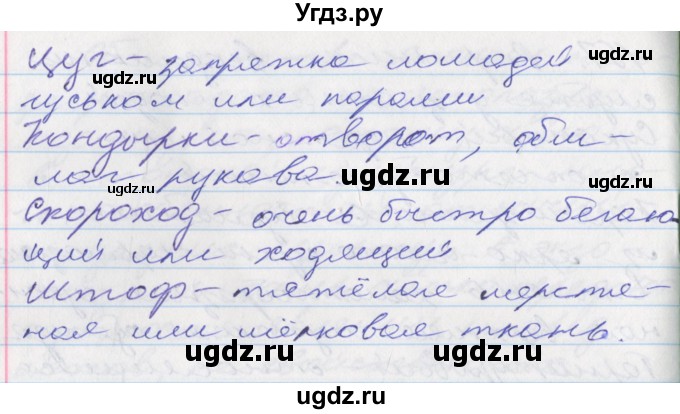 Угдз.ру
Цуг - запряжка лошадей
гуськом или парами
Кондырки - отворот, обш-
лаг рукава.
Скороход - очень быстро бегаю-
щий или ходящий
Штоф - тяжёлая шерстя-
ная или шёлковая ткань.
ugdz.ru
ugdz.ru
ugdz.ru
ugdz.ru
ugdz.ru
ugdz.ru
ugdz.ru
ugdz.ru
ugdz.ru
ugdz.ru
ugdz.ru